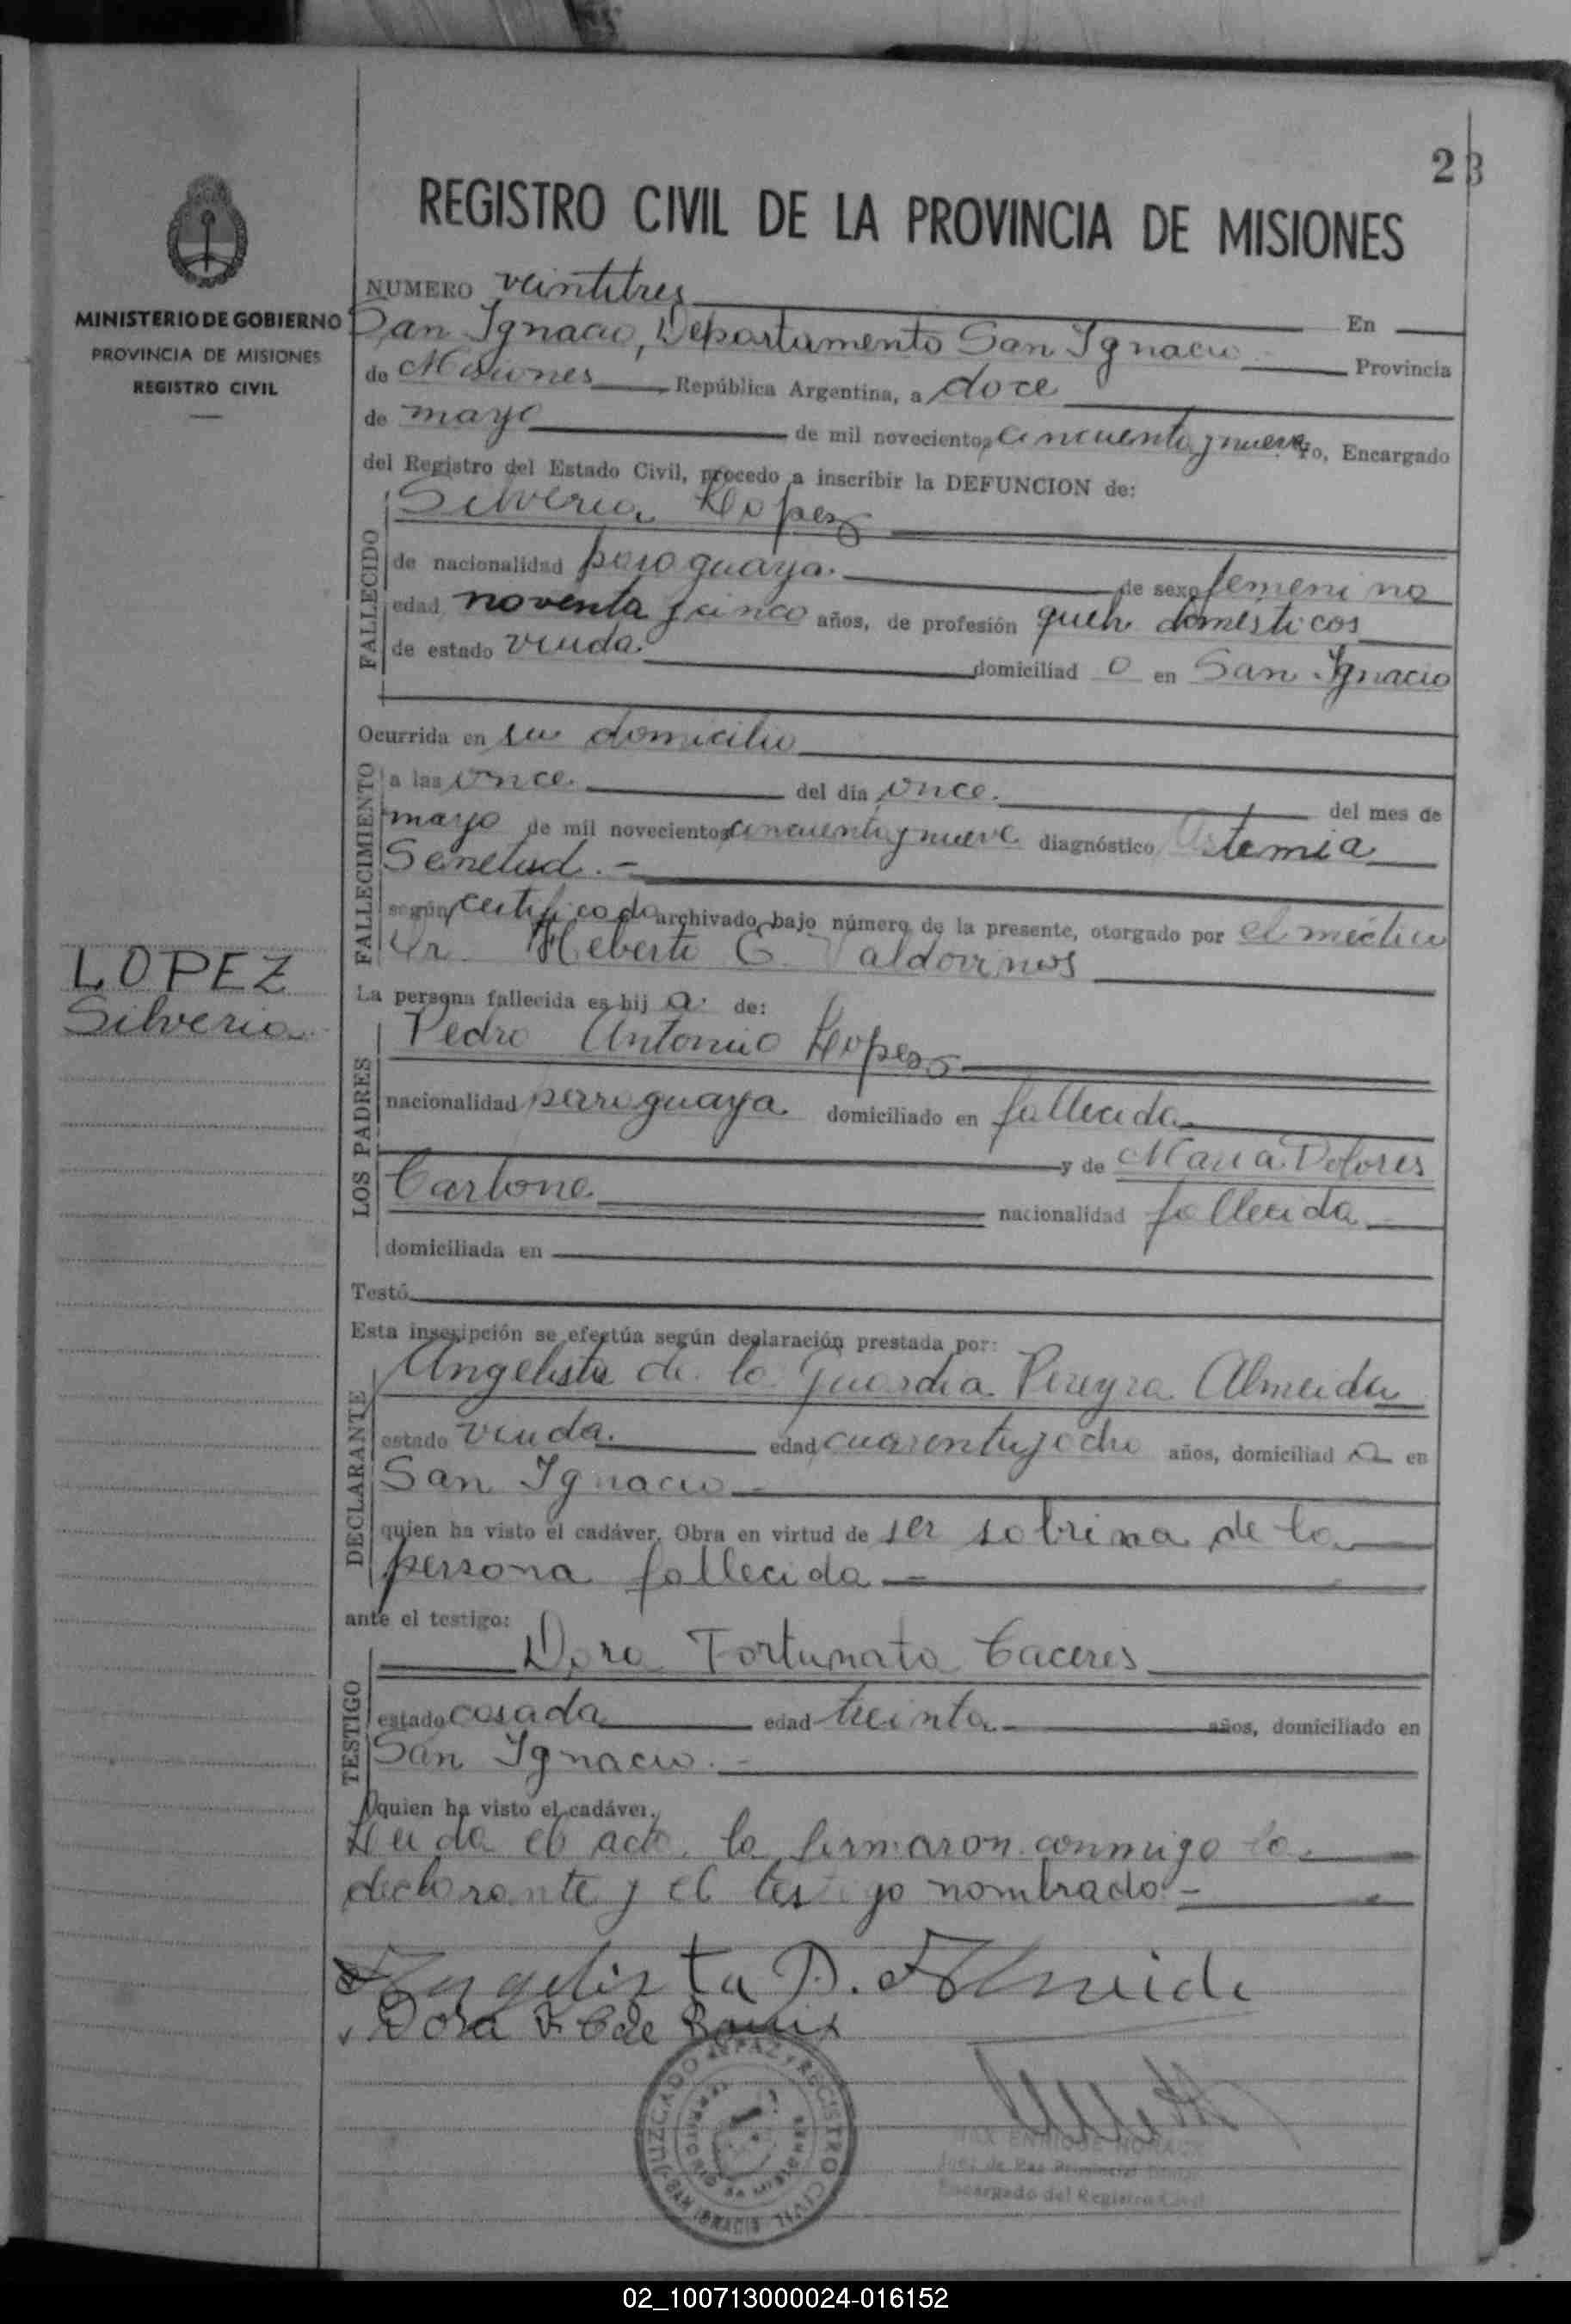 23
REGISTRO CIVIL DE LA PROVINCIA DE MISIONES
MINISTERIO DE GOBIERNO
PROVINCIA DE MISIONES
REGISTRO CIVIL
NUMERO veintitres En
San Ignacio, Departamento San Ignacio Provincia
de Misiones República Argentina, a doce
de mayo de mil novecientos cincuenta y nueve yo, Encargado
del Registro del Estado Civil, procedo a inscribir la DEFUNCION de:
FALLECIDO
Silveria Lopez
de nacionalidad paraguaya. de sexo femenino
edad noventa y cinco años, de profesión queh. domésticos
de estado viuda. domiciliad o en San Ignacio
Ocurrida en su domicilio
FALLECIMIENTO
a las once. del día once. del mes de
mayo de mil novecientos cincuenta y nueve diagnóstico
Senetud. -
según certificado archivado bajo número de la presente, otorgado por el médico
Dr. Heberto G. Valdovinos
LOPEZ
Silveria
La persona fallecida es hij a de:
LOS PADRES
Pedro Antonio Lopez
nacionalidad paraguaya domiciliado en fallecida
y de Maria Dolores
nacionalidad fallecida
domiciliada en
Testó
Esta inscripción se efectúa según declaración prestada por:
DECLARANTE
Angelista de la Guardia Pereyra Almeida
estado viuda. edad cuarenta y ocho años, domiciliad a en
San Ignacio
quien ha visto el cadáver. Obra en virtud de ser sobrina de la
persona fallecida
ante el testigo:
TESTIGO
Dora Fortunata Caceres
estado casada edad treinta años, domiciliado en
San Ignacio. -
quien ha visto el cadáver.
Leida el acta, la firmaron conmigo la
declarante y el testigo nombrado. -
Angelista P. Almeida
Dora F. C de
JUZGADO DE PAZ Y REGISTRO CIVIL
SAN IGNACIO
MAX ENRIQUE
Juez de Paz
Encargado del Registro Civil
02_100713000024-016152